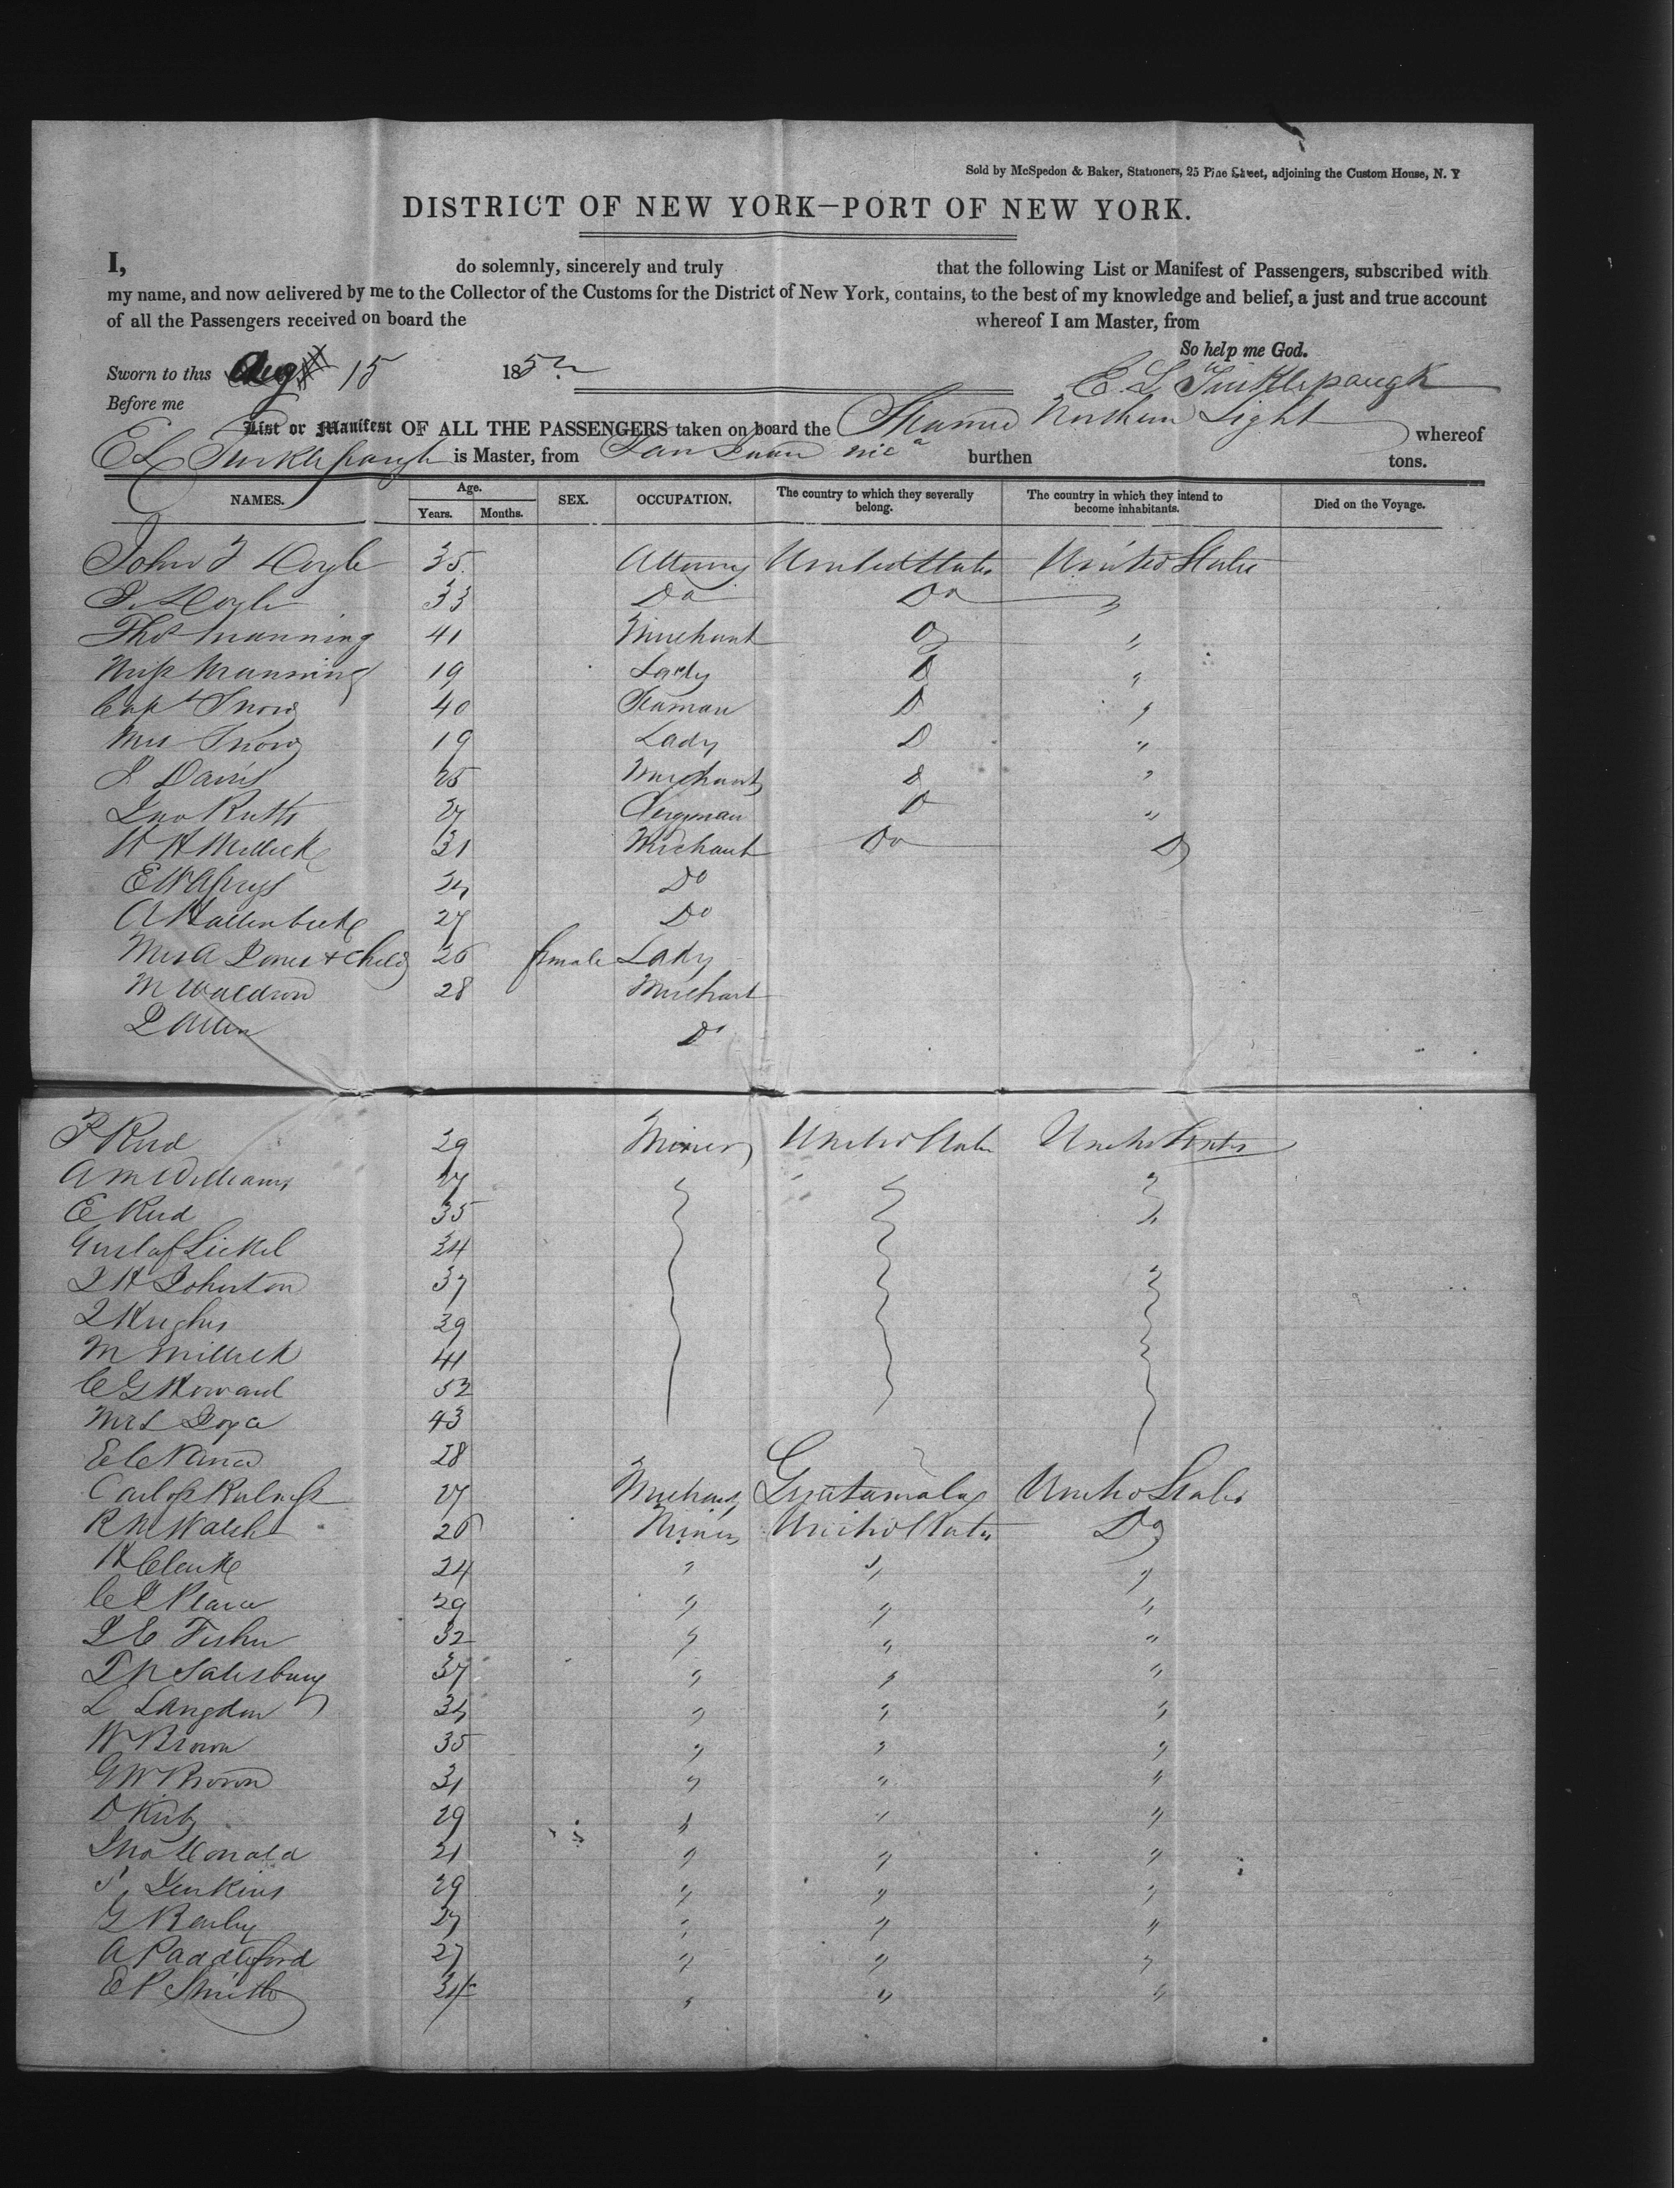 Sold by McSpedon & Baker, Stationers, 25 Pine Street, adjoining the Custom House, N. Y
DISTRICT OF NEW YORK—PORT OF NEW YORK.
I, do solemnly, sincerely and truly that the following List or Manifest of Passengers, subscribed with
my name, and now delivered by me to the Collector of the Customs for the District of New York, contains, to the best of my knowledge and belief, a just and true account
of all the Passengers received on board the whereof I am Master, from
So help me God.
Sworn to this Aug 15 1852 E L Tinklepaugh
Before me
List or Manifest OF ALL THE PASSENGERS taken on board the Steamer Northern Light whereof
E L Tinklepaugh is Master, from San Juan Nic a burthen tons.
NAMES. Age. Years. Months. SEX. OCCUPATION. The country to which they severally belong. The country in which they intend to become inhabitants. Died on the Voyage.
John T Doyle 35 Attorney United States United States
Doyle 33 Do Do "
Thos Manning 41 Merchant Do "
Miss Manning 19 Lady D "
Capt Snow 40 Seaman D "
Mrs Snow 19 Lady D "
J Davis 25 Merchant D "
Jno Rutts 27 Clergyman D "
W H Mellick 31 Merchant Do Do
E W 24 Do
A Hallenbeck 27 Do
Mrs A Jones & Child 26 female Lady
M Waldron 28 Merchant
J Allen Do
P Reed 29 Miner United States United States
A M Williams 27 "
E Reed 35 "
Gustaf Sickel 34
J H Johnston 37
J Hughes 39
M Millick 41
C G Howard 52
Mrs L 43
E C 28
Carlos 27 Merchant Guatamala United States
R M Walsh 26 Miner United States Do
H Clarke 24 " " "
C J Pearce 29 " " "
J E Fisher 32 " " "
J N Salisbury 37 " " "
L Langdon 34 " " "
W Brown 35 " " "
G W Brown 31 " " "
D Kirby 29 " " "
Jno Conald 21 " " "
Jenkins 29 " " "
G 27 " " "
A Paddleford 27 " " "
E P Smith 34 " " "